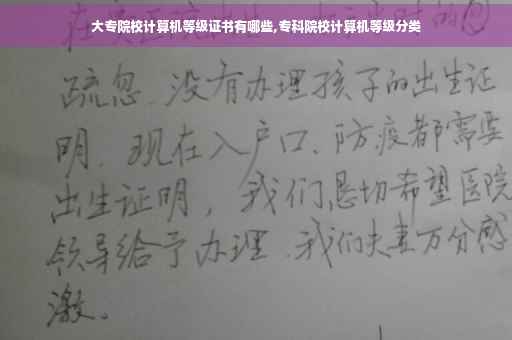 大专院校计算机等级证书有哪些,专科院校计算机等级分类
疏忽、没有办理孩子的出生证
明、现在入户口、防疫都需要
出生证明，我们恳切希望医院
领导给予办理、我们夫妻万分感
激。